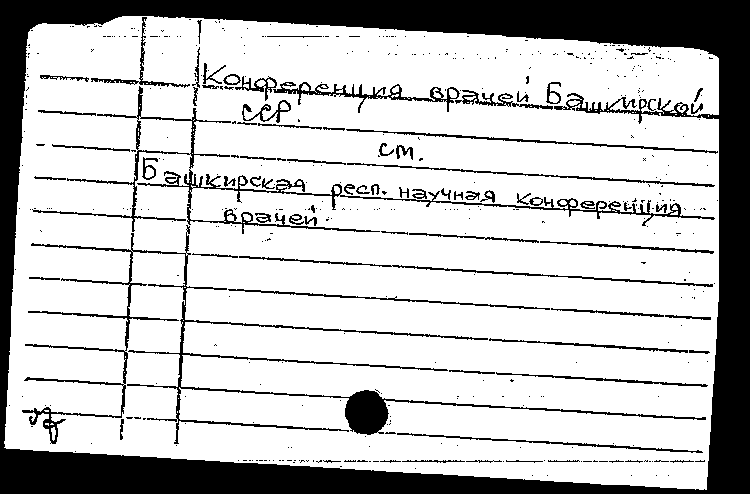 Конференция врачей Башкирской
ССР.
см.
Башкирская респ. научная конференция
врачей.